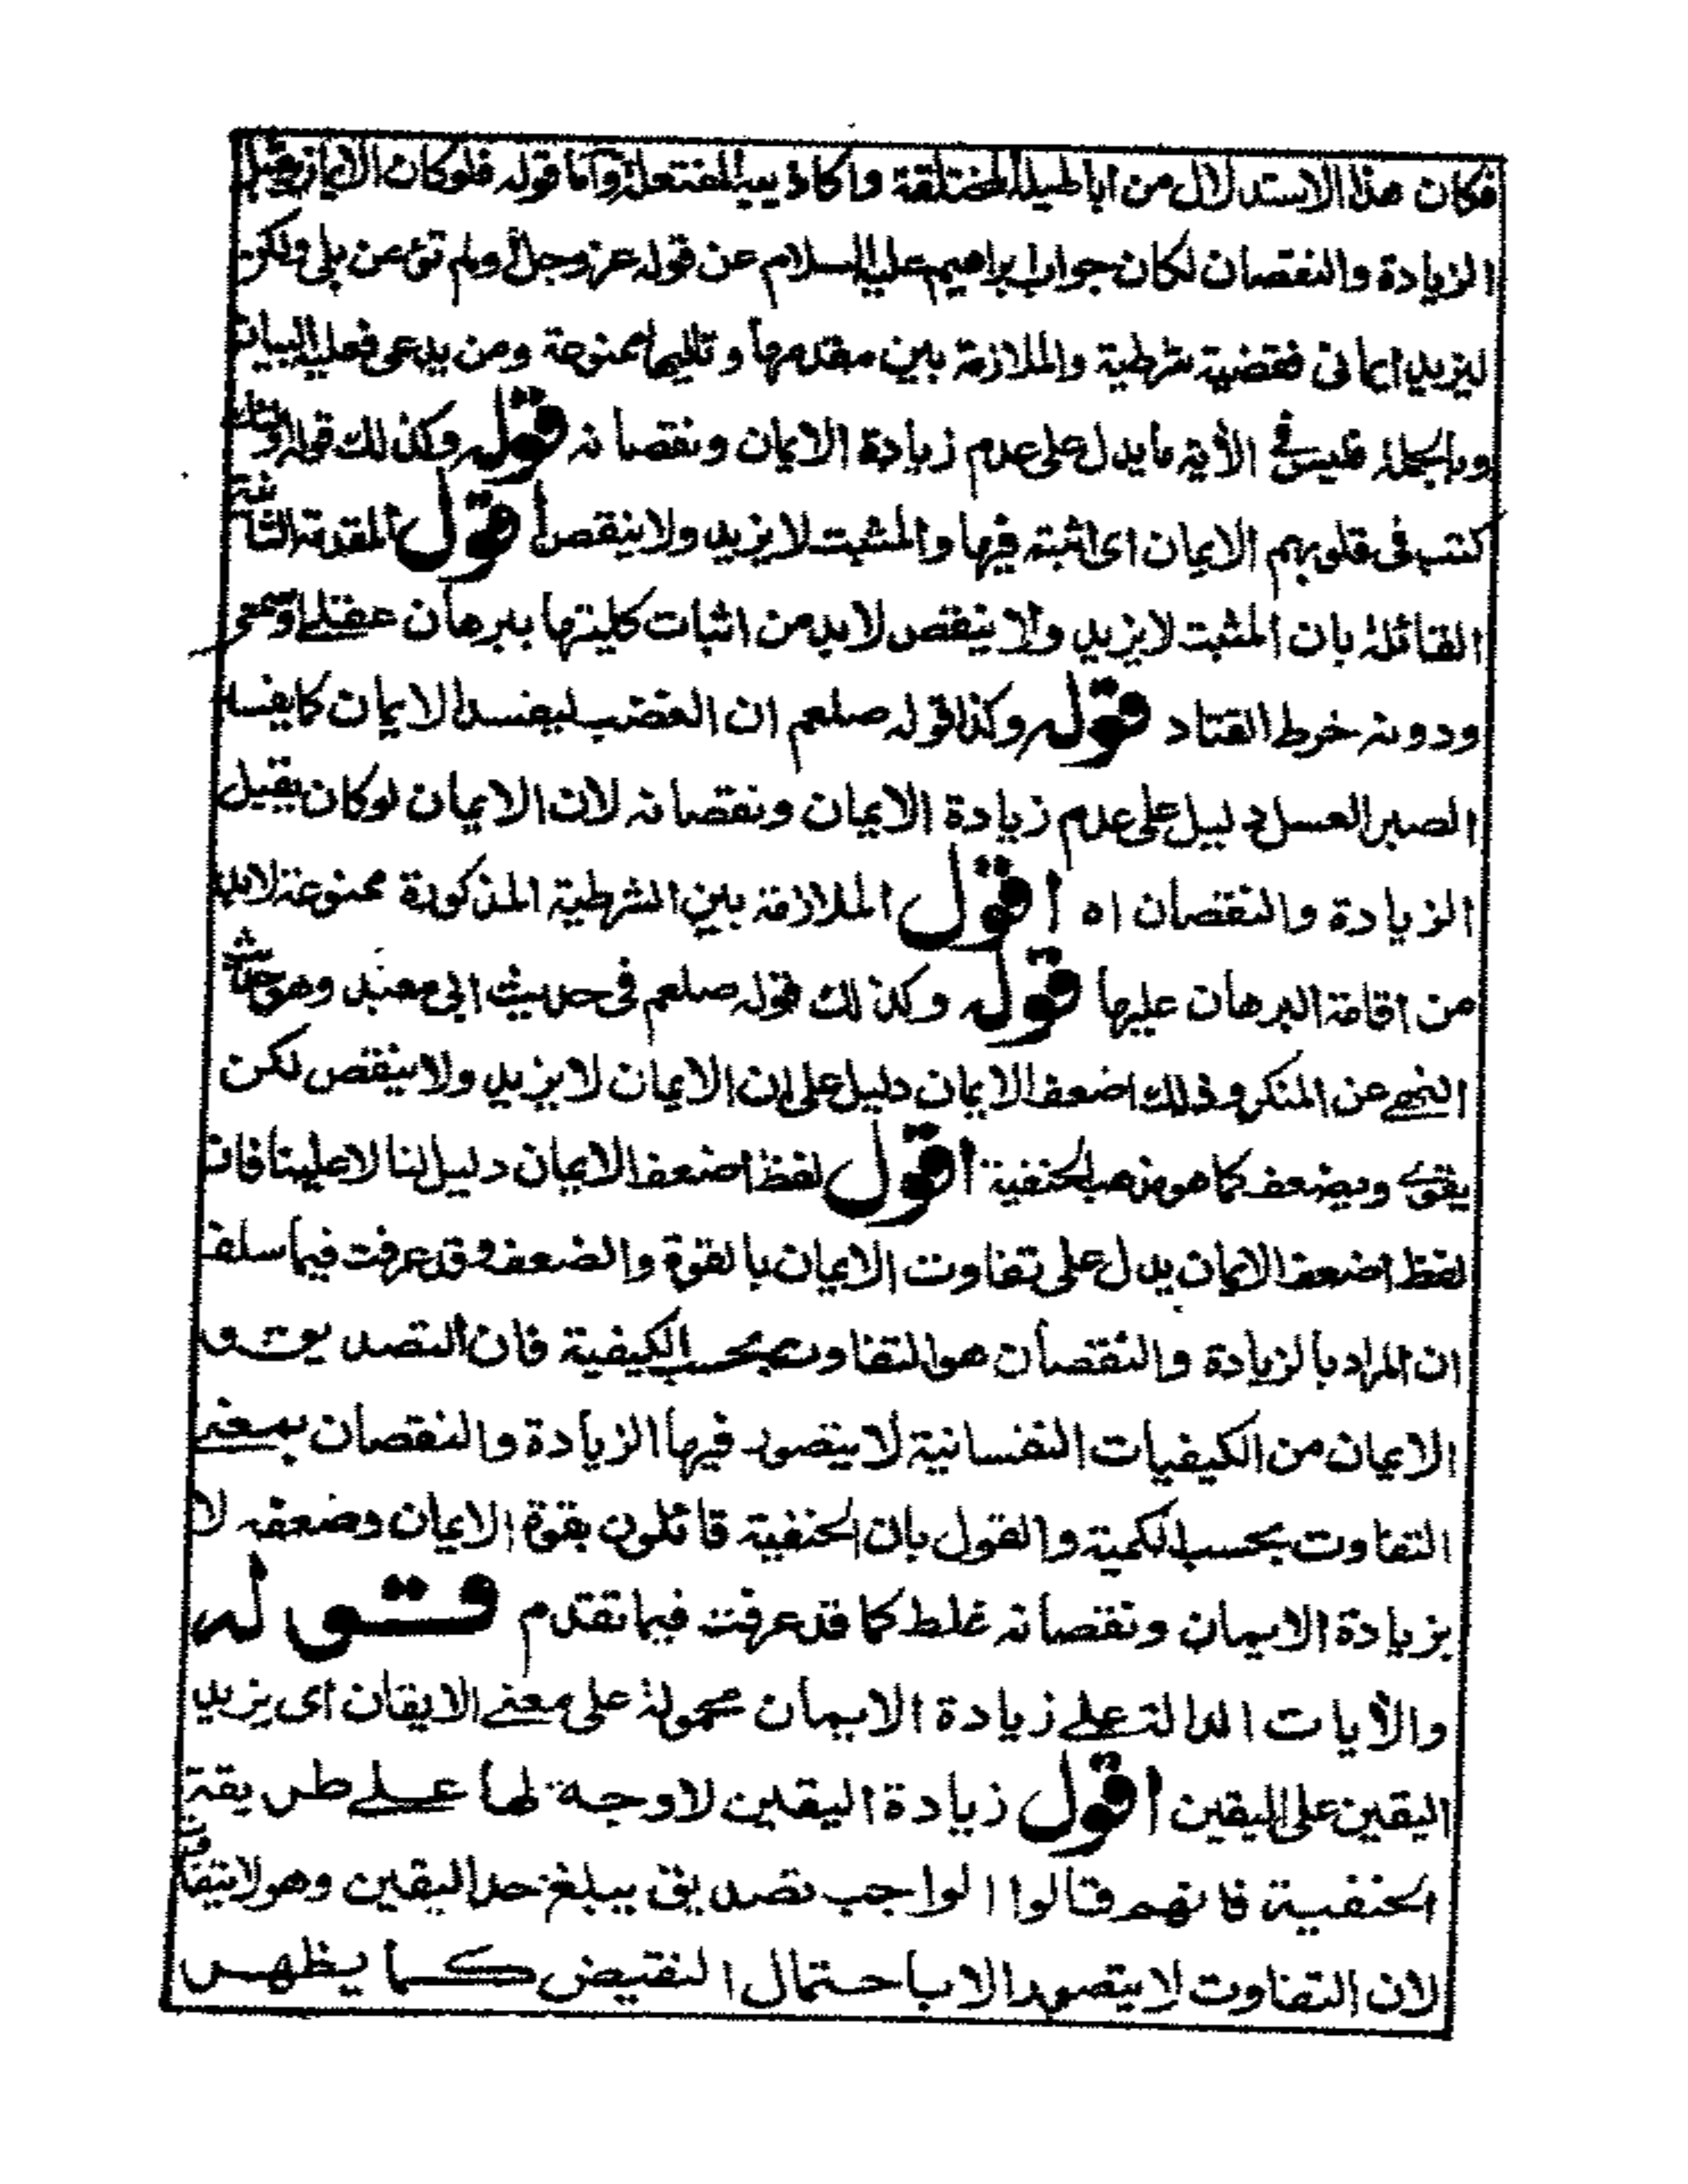 فكان هذا الاستدلال من اباطيله المختلقة واكاذيبه المفتعلة وآما قوله فلوكان الايمان يقبل
الزيادة والنقصان لكان جواب ابراهيم عليه السلام عن قوله عز وجل اولم تؤمن بلى ولكن
ليزيد ايماني فقضية شرطية والملازمة بين مقدمها وتاليها ممنوعة ومن يدعى فعليه البيان
وبالجملة فليس في الآية ما يدل على عدم زيادة الايمان ونقصانه قوله وكذلك قوله اولئك
كتب في قلوبهم الايمان اى اثبته فيها والمثبت لا يزيد ولا ينقص اقول المقدمة الثانية
القائلة بان المثبت لا يزيد ولا ينقص لابد من اثبات كليتها ببرهان عقلے او سمعى
ودونه خرط القتاد قوله وكذا قوله صلعم ان الغضب ليفسد الايمان كما يفسد
الصبر العسل دليل على عدم زيادة الايمان ونقصانه لان الايمان لوكان يقبل
الزيادة والنقصان اه اقول الملازمة بين الشرطية المذكورة ممنوعة لابد
من اقامة البرهان عليها قوله وكذلك قوله صلعم في حديث ابي معبد وهو
النهے عن المنكر وذلك اضعف الايمان دليل على ان الايمان لا يزيد ولا ينقص لكن
يقوے ويضعف كما هو مذهب الحنفية اقول لفظ اضعف الايمان دليل لنا لا علينا فان
لفظ اضعف الايمان يدل على تفاوت الايمان بالقوة والضعف وقد عرفت فيما سلف
ان المراد بالزيادة والنقصان هو التفاوت بحسب الكيفية فان التصديق و
الايمان من الكيفيات النفسانية لا يتصور فيها الزيادة والنقصان بمعنے
التفاوت بحسب الكمية والقول بان الحنفية قائلون بقوة الايمان وضعفه لا
بزيادة الايمان ونقصانه غلط كما قد عرفت فيما تقدم قوله
والآيات الدالة علے زيادة الايمان محمولة على معنے الايقان اى يزيد
اليقين على اليقين اقول زيادة اليقين لا وجه لها علے طريقة
الحنفية فانهم قالوا الواجب تصديق يبلغ حد اليقين وهو لا يتفاوت
لان التفاوت لا يتصور الا باحتمال النقيض كما يظهر